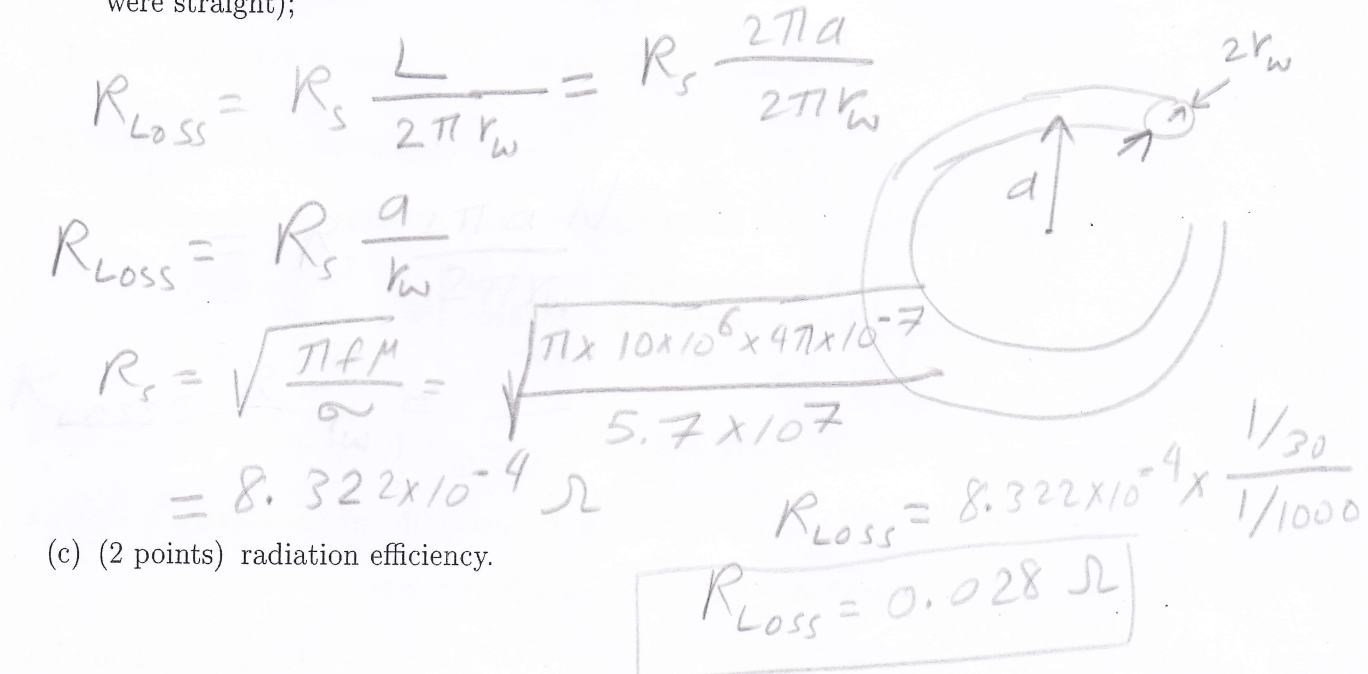 were straight);
R_LOSS = R_s L / 2π r_w = R_s 2πa / 2π r_w
2r_w
a
R_LOSS = R_s a / r_w
R_s = √(πfμ / σ) = √(π × 10×10^6 × 4π×10^-7 / 5.7×10^7)
= 8.322×10^-4 Ω
R_LOSS = 8.322×10^-4 × 1/30 / 1/1000
(c) (2 points) radiation efficiency.
R_LOSS = 0.028 Ω